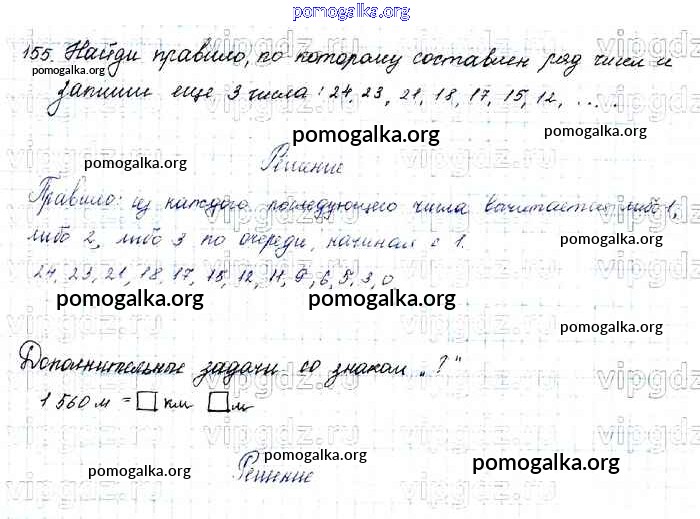 pomogalka.org
155. Найди правило, по которому составлен ряд чисел и
pomogalka.org
запиши еще 3 числа: 24, 23, 21, 18, 17, 15, 12, .....
pomogalka.org
pomogalka.org Решение pomogalka.org
Правило: из каждого последующего числа вычитается либо 1,
pomogalka.org
либо 2, либо 3 по очереди, начиная с 1.
24, 23, 21, 18, 17, 15, 12, 11, 9, 6, 5, 3, 0
pomogalka.org pomogalka.org
pomogalka.org
Дополнительные задачи со знаком „?“
1 560 м = км м
pomogalka.org
pomogalka.org Решение pomogalka.org